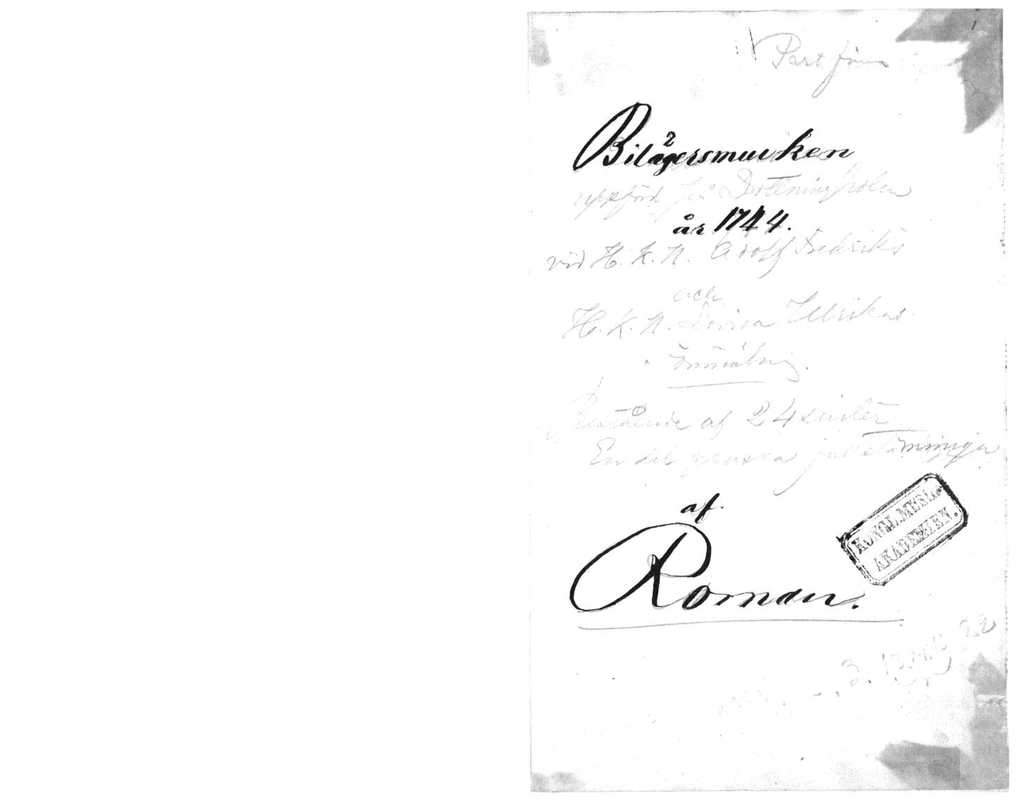 Part finns
Bilägersmusiken
uppförd på Drottningholm
år 1744.
vid H. K. H. Adolf Fredriks
och
H. K. H. Lovisa Ulrikas
förmälning.
Bestående af 24 satser
En del ganska
af
Roman.
KONGL. MUSIK.
AKADEMIEN.